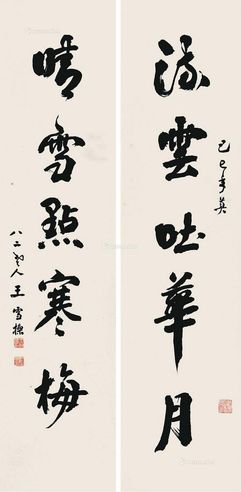 流雲吐華月
己巳年英
晴雪點寒梅
八二叟人王雪樵